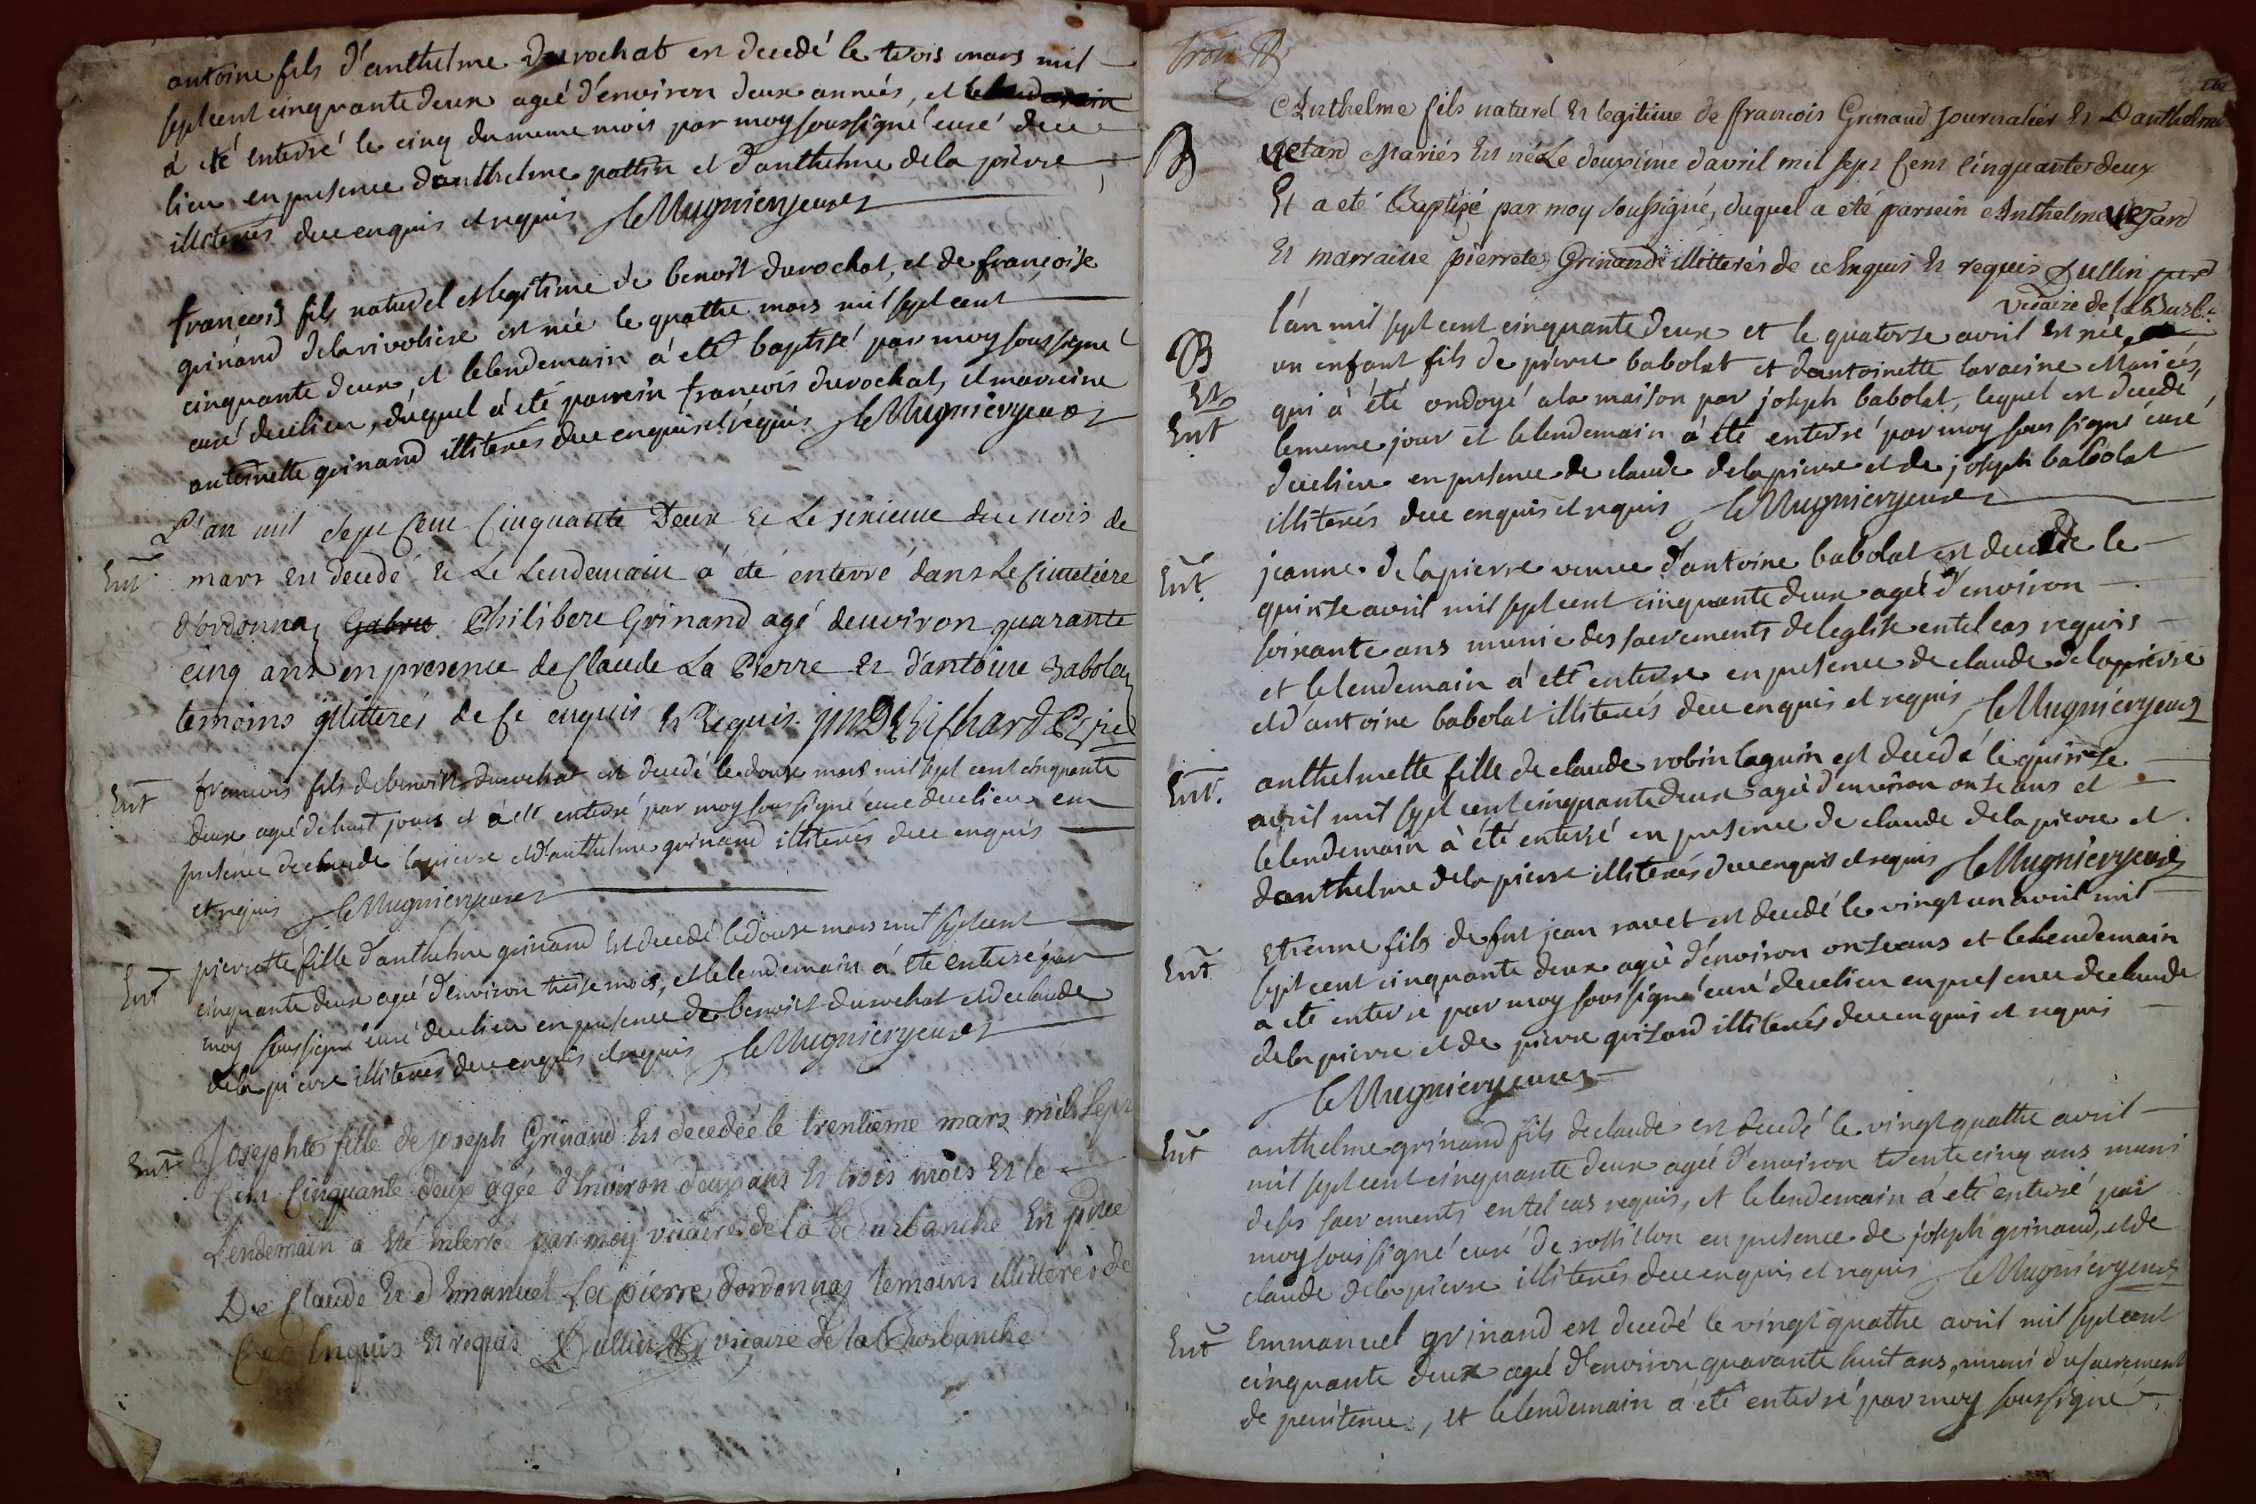 antoine fils d'anthelme durochat est decedé le trois mars mil
sept cent cinquante deux ageé d'environ deux anneés, et lelendemain
à eté enterré le cinq du meme mois par moy soussigné curé dece
lieu en presence danthelme pattin et d'anthelme dela pierre
illiterés dece enquis et requis
françois fils naturel et legitime de benoit durochat, et de françoise
grinand delarivoliere est née le quatre mars mil sept cent
cinquante deux, et lelendemain à eté baptisé par moy soussigné
curé decelieu, duquel à eté parrein françois durochat, et marreine
antoinette grinand illiterés dece enquis et requis
L'an mil sept Cent Cinquante Deux et Le sixieme du mois de
Ent mars est decedé et Le Lendemain a été enterré dans Le Cimetiere
d'ordonnaz Philibert Grinand agé denviron quarante
cinq ans en presence de Claude La Pierre et d'antoine Babolaz
temoins illitterés de Ce enquis et Requis
Ent francois fils de benoist durochat est decedé ledouze mars mil sept cent cinquante
deux ageé dehuit jours et à eté enterré par moy soussigné curé decelieu en
presence declaude lapierre et d'anthelme grinand illiterés dece enquis
et requis
Ent pierrette fille d'anthelme grinand est decedé ledouze mars mil sept cent
cinquante deux ageé d'environ treise mois, et lelendemain à eté enterré par
moy soussigné curé decelieu en presence de benoist durochat et declaude
dela pierre illiterés dece enquis et requis
Ent Josephte fille de joseph Grinand Est decedée le trentieme mars mil Sept
Cent Cinquante deux agée d'Environ deux ans Et trois mois Et le
Lendemain a Eté interrée par moy vicaire de la Burbanche En pñce
De Claude Et d'Emanuel La pierre dordonnas temoins illitterés de
Ce Enquis Et requis Dullin vicaire de la Burbanche
B Anthelme fils naturel Et legitime de francois Grinand Journalier Et Danthelme
Vetard Mariés Est né Le deuxieme davril mil sept Cent Cinquante deux
Et a eté Baptizé par moy soussigné, duquel a été parrein Anthelme Vetard
Et marraine pierrete Grinand illitterés de ce Enquis Et requis Dullin
vicaire de la Burb.
l'an mil sept cent cinquante deux et le quatorse avril est née
B un enfant fils de pierre babolat et dantoinette laracine Mariées,
Et qui à été ondoyé ala maison par joseph babolat, lequel est decedé
Ent lememe jour et lelendemain à été enterré par moy soussigné curé
decelieu en presence de claude delapierre et de joseph babolat
illiterés dece enquis et requis
Ent. jeanne delapierre veuve d'antoine babolat est decedé le
quinse avril mil sept cent cinquante deux ageé d'environ
soixante ans munie des sacrements deleglise entel cas requis
et lelendemain à eté enterré en presence de claude delapierre
et d'antoine babolat illiterés dece enquis et requis
Ent. anthelmette fille de claude robin laguin est decedé le quinse
avril mil sept cent cinquante deux ageé d'environ onse ans et
lelendemain à été enterré en presence de claude delapierre et
danthelme delapierre illiterés dece enquis et requis
Ent Etienne fils de fut jean ravet est decedé le vingt un avril mil
sept cent cinquante deux ageé d'environ onse ans et lelendemain
a eté enterré par moy soussigné curé decelieu en presence declaude
delapierre et de pierre grisard illiterés dece enquis et requis
Ent anthelme grinand fils declaude est decedé le vingt quatre avril
mil sept cent cinquante deux ageé d'environ trente cinq ans muni
deses sacrements entel cas requis, et lelendemain à eté enterré par
moy soussigné curé de rossillon en presence de joseph grinand, et de
claude delapierre illiterés dece enquis et requis
Ent Emmanuel grinand est decedé le vingt quatre avril mil sept cent
cinquante deux ageé d'environ quarante huit ans, muni du sacrement
de penitence, et lelendemain a été enterré par moy soussigné